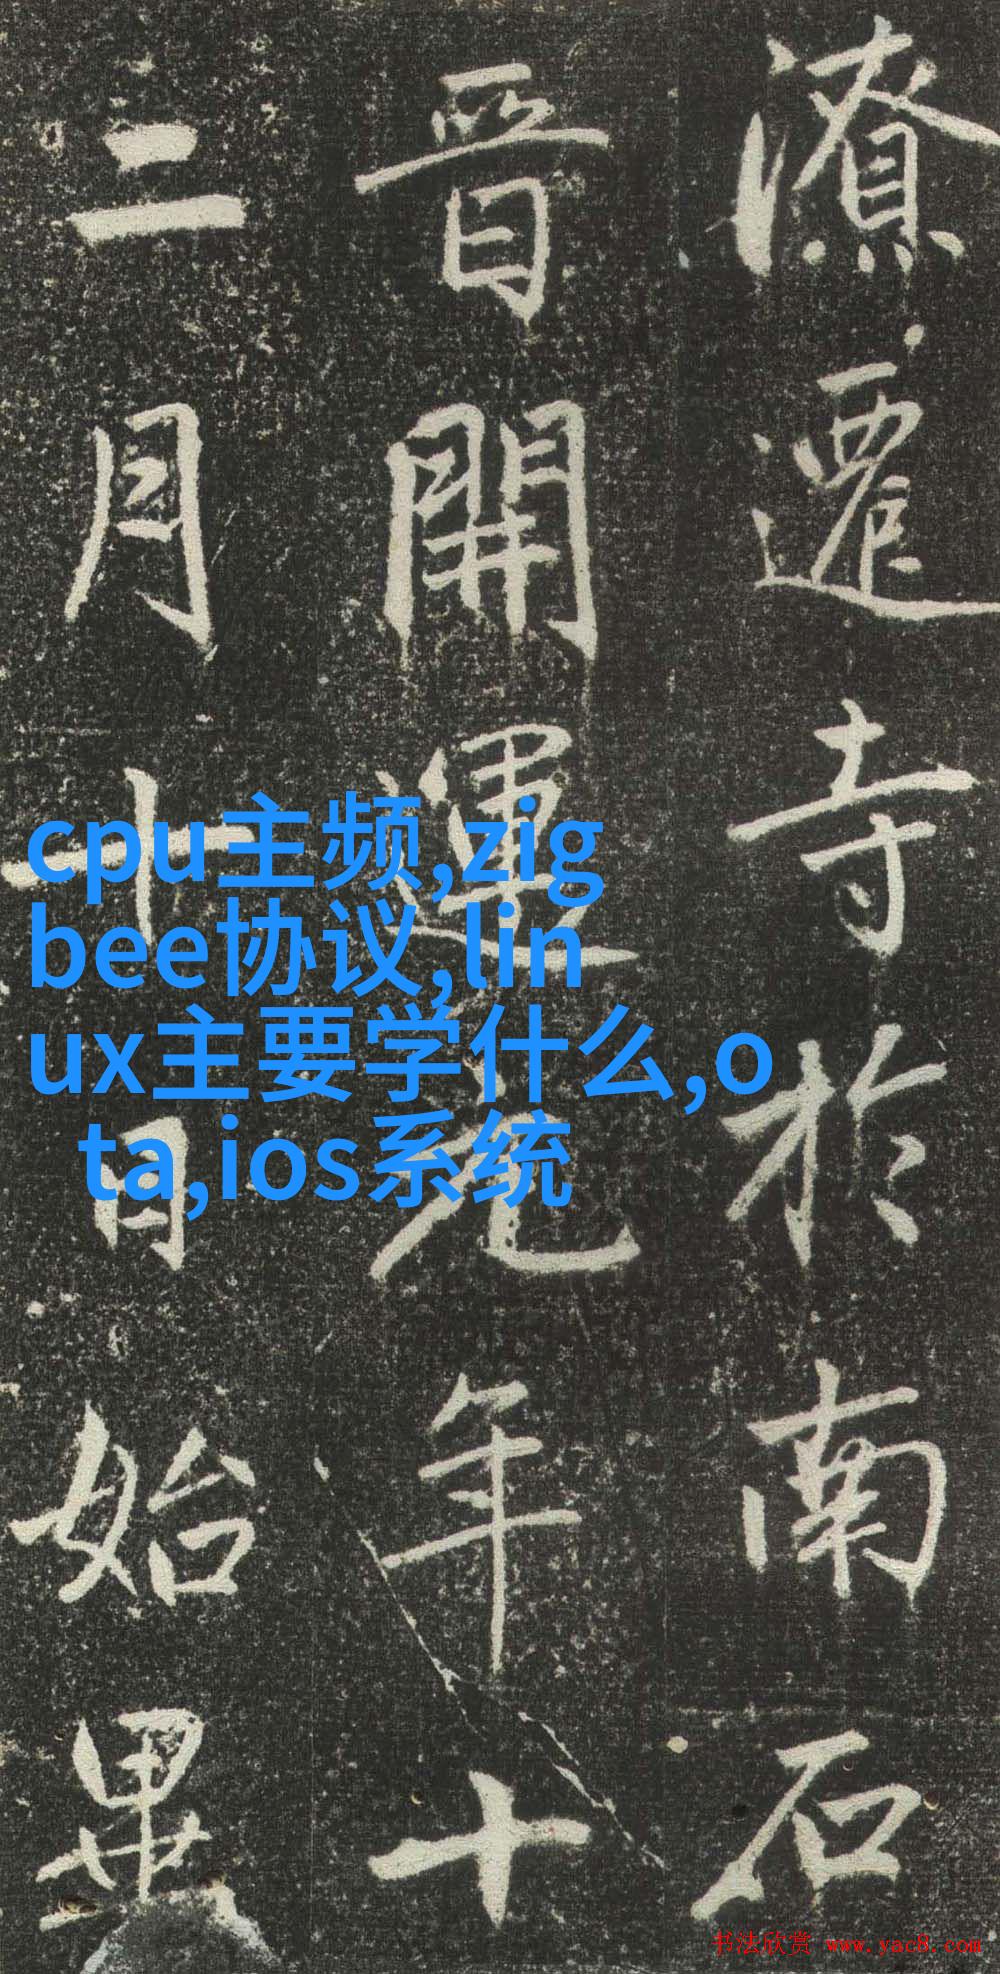 潦遷寺於南石
晉開運元年十
二月十日始畢
cpu主频,zig
bee协议,lin
ux主要学什么,o
ta,ios系统
书法欣赏 www.yac8.com